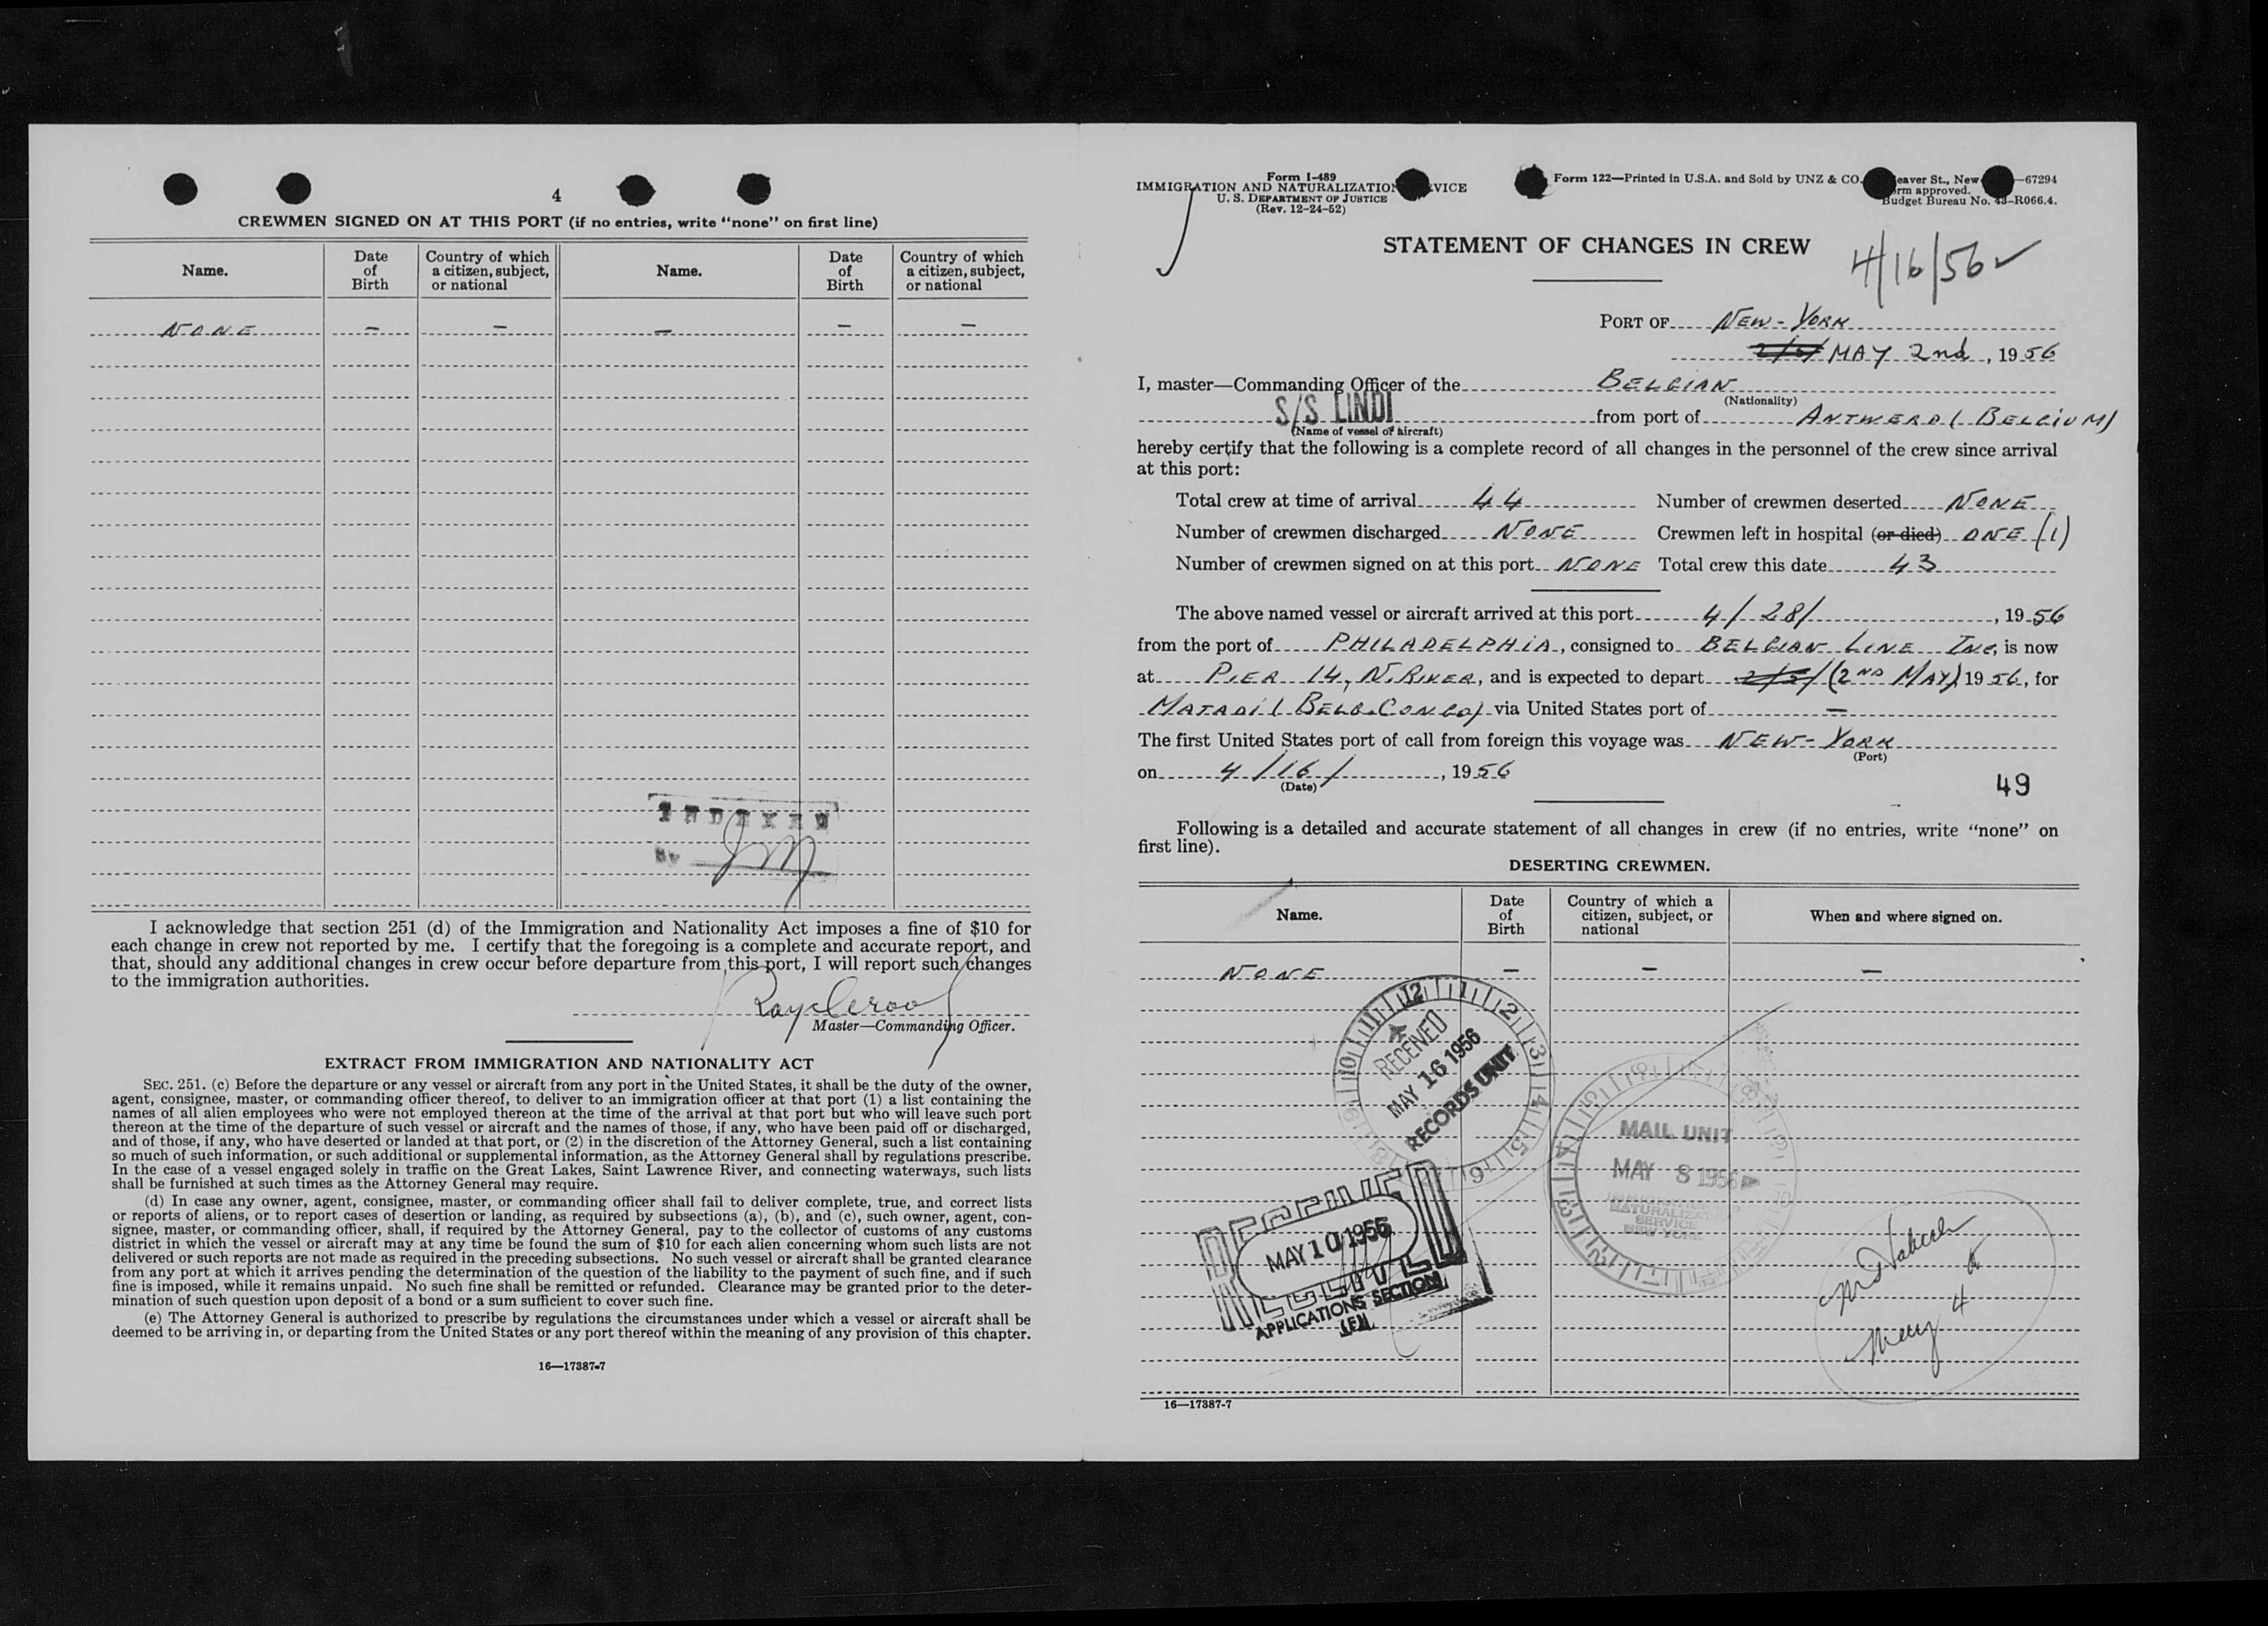 4
CREWMEN SIGNED ON AT THIS PORT (if no entries, write "none" on first line)
Name. Date of Birth Country of which a citizen, subject, or national Name. Date of Birth Country of which a citizen, subject, or national
NONE — — — — —
INDEXED
By JM
I acknowledge that section 251 (d) of the Immigration and Nationality Act imposes a fine of $10 for
each change in crew not reported by me. I certify that the foregoing is a complete and accurate report, and
that, should any additional changes in crew occur before departure from this port, I will report such changes
to the immigration authorities.
Master—Commanding Officer.
EXTRACT FROM IMMIGRATION AND NATIONALITY ACT
SEC. 251. (c) Before the departure or any vessel or aircraft from any port in the United States, it shall be the duty of the owner,
agent, consignee, master, or commanding officer thereof, to deliver to an immigration officer at that port (1) a list containing the
names of all alien employees who were not employed thereon at the time of the arrival at that port but who will leave such port
thereon at the time of the departure of such vessel or aircraft and the names of those, if any, who have been paid off or discharged,
and of those, if any, who have deserted or landed at that port, or (2) in the discretion of the Attorney General, such a list containing
so much of such information, or such additional or supplemental information, as the Attorney General shall by regulations prescribe.
In the case of a vessel engaged solely in traffic on the Great Lakes, Saint Lawrence River, and connecting waterways, such lists
shall be furnished at such times as the Attorney General may require.
(d) In case any owner, agent, consignee, master, or commanding officer shall fail to deliver complete, true, and correct lists
or reports of aliens, or to report cases of desertion or landing, as required by subsections (a), (b), and (c), such owner, agent, con-
signee, master, or commanding officer, shall, if required by the Attorney General, pay to the collector of customs of any customs
district in which the vessel or aircraft may at any time be found the sum of $10 for each alien concerning whom such lists are not
delivered or such reports are not made as required in the preceding subsections. No such vessel or aircraft shall be granted clearance
from any port at which it arrives pending the determination of the question of the liability to the payment of such fine, and if such
fine is imposed, while it remains unpaid. No such fine shall be remitted or refunded. Clearance may be granted prior to the deter-
mination of such question upon deposit of a bond or a sum sufficient to cover such fine.
(e) The Attorney General is authorized to prescribe by regulations the circumstances under which a vessel or aircraft shall be
deemed to be arriving in, or departing from the United States or any port thereof within the meaning of any provision of this chapter.
16—17387-7
Form I-489
IMMIGRATION AND NATURALIZATION VICE
U. S. DEPARTMENT OF JUSTICE
(Rev. 12-24-52)
Form 122—Printed in U.S.A. and Sold by UNZ & CO. eaver St., New —67294
rm approved.
Budget Bureau No. 43-R066.4.
STATEMENT OF CHANGES IN CREW
4/16/56 ✓
PORT OF NEW-YORK
MAY 2nd, 1956
I, master—Commanding Officer of the BELGIAN
(Nationality)
S/S LINDI from port of ANTWERP (BELGIUM)
(Name of vessel or aircraft)
hereby certify that the following is a complete record of all changes in the personnel of the crew since arrival
at this port:
Total crew at time of arrival 44 Number of crewmen deserted NONE
Number of crewmen discharged NONE Crewmen left in hospital (or died) ONE (1)
Number of crewmen signed on at this port NONE Total crew this date 43
The above named vessel or aircraft arrived at this port 4/28/, 1956
from the port of PHILADELPHIA, consigned to BELGIAN LINE Inc, is now
at PIER 14, N. RIVER, and is expected to depart 2/5/ (2ND MAY) 1956, for
MATADI (BELG. CONGO) via United States port of —
The first United States port of call from foreign this voyage was NEW-YORK
(Port)
on 4/16/, 1956
(Date)
49
Following is a detailed and accurate statement of all changes in crew (if no entries, write "none" on
first line).
DESERTING CREWMEN.
Name. Date of Birth Country of which a citizen, subject, or national When and where signed on.
NONE — — —
RECEIVED
MAY 16 1956
RECORDS UNIT
MAIL UNIT
MAY 8 1956
IMMIGRATION AND
NATURALIZATION
SERVICE
NEW YORK
RECEIVED
MAY 10 1956
APPLICATIONS SECTION
May 4
16—17387-7